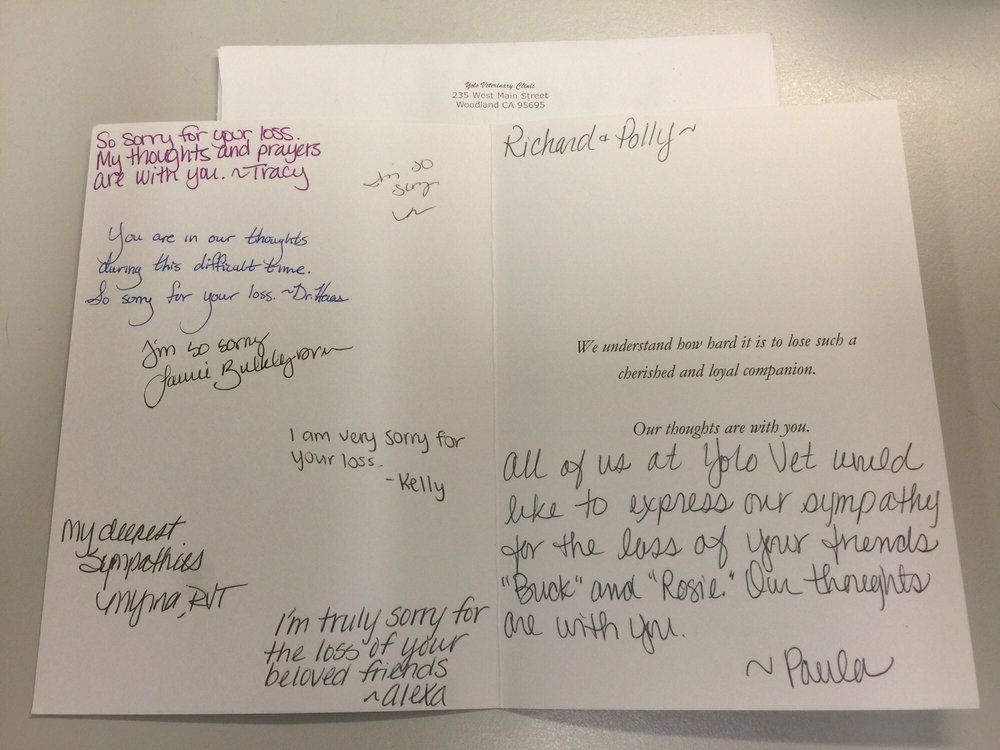 Yolo Veterinary Clinic
235 West Main Street
Woodland CA 95695
So sorry for your loss.
My thoughts and prayers
are with you. ~Tracy
I'm so
sorry
You are in our thoughts
during this difficult time.
So sorry for your loss. ~Dr. Haas
I'm so sorry
I am very sorry for
your loss.
-Kelly
My deepest
Sympathies
Myrna, RVT
I'm truly sorry for
the loss of your
beloved friends
~alexa
Richard & Polly ~
We understand how hard it is to lose such a
cherished and loyal companion.
Our thoughts are with you.
All of us at Yolo Vet would
like to express our sympathy
for the loss of your friends
"Buck" and "Rosie." Our thoughts
are with you.
~Paula